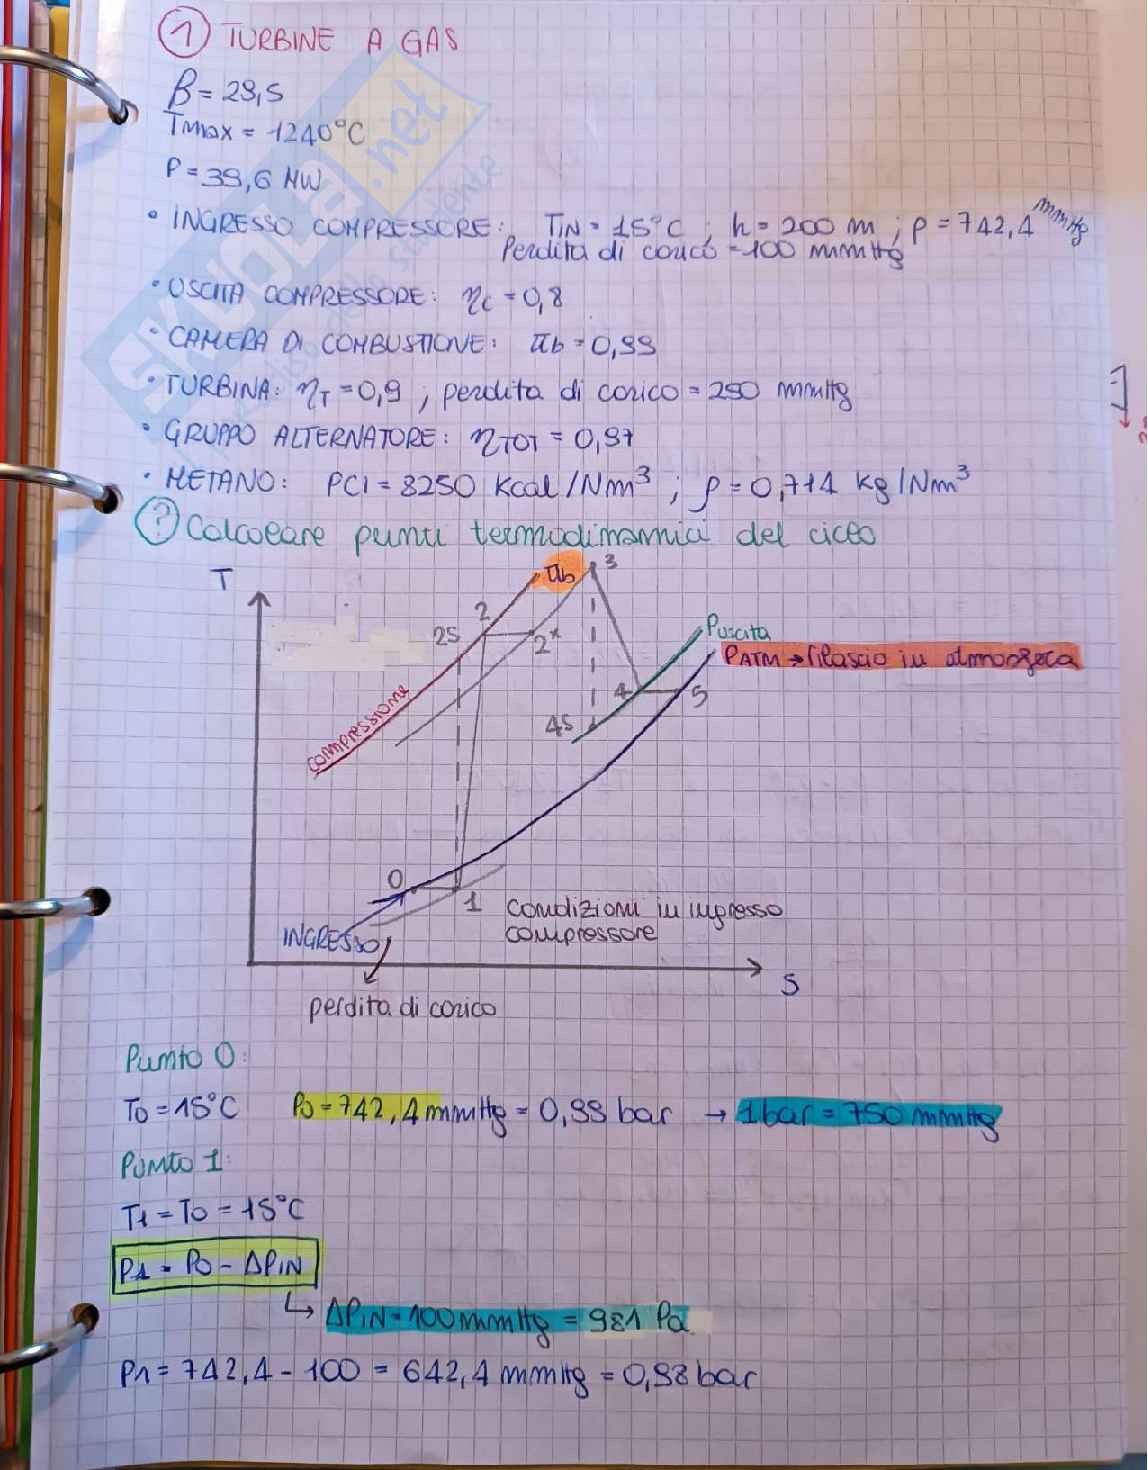 ① TURBINE A GAS
β = 29,5
Tmax = 1240°C
P = 39,6 MW
• INGRESSO COMPRESSORE: TIN = 15°C ; h = 200 m ; p = 742,4 mmHg
Perdita di carico = 100 mmHg
• USCITA COMPRESSORE: ηc = 0,8
• CAMERA DI COMBUSTIONE: πb = 0,99
• TURBINA: ηT = 0,9 ; perdita di carico = 250 mmHg
• GRUPPO ALTERNATORE: ηTOT = 0,97
• METANO: PCI = 8250 Kcal/Nm³ ; ρ = 0,714 kg/Nm³
? Calcolare punti termodinamici del ciclo
T
πb
3
2
2S
2*
Puscita
PATM → rilascio in atmosfera
compressione
4
5
4S
0
1 condizioni in ingresso
compressore
INGRESSO
S
perdita di carico
Punto 0:
T0 = 15°C P0 = 742,4 mmHg = 0,99 bar → 1 bar = 750 mmHg
Punto 1:
T1 = T0 = 15°C
P1 = P0 - ΔPIN
↳ ΔPIN = 100 mmHg = 981 Pa
P1 = 742,4 - 100 = 642,4 mmHg = 0,98 bar
SKUOLA.net